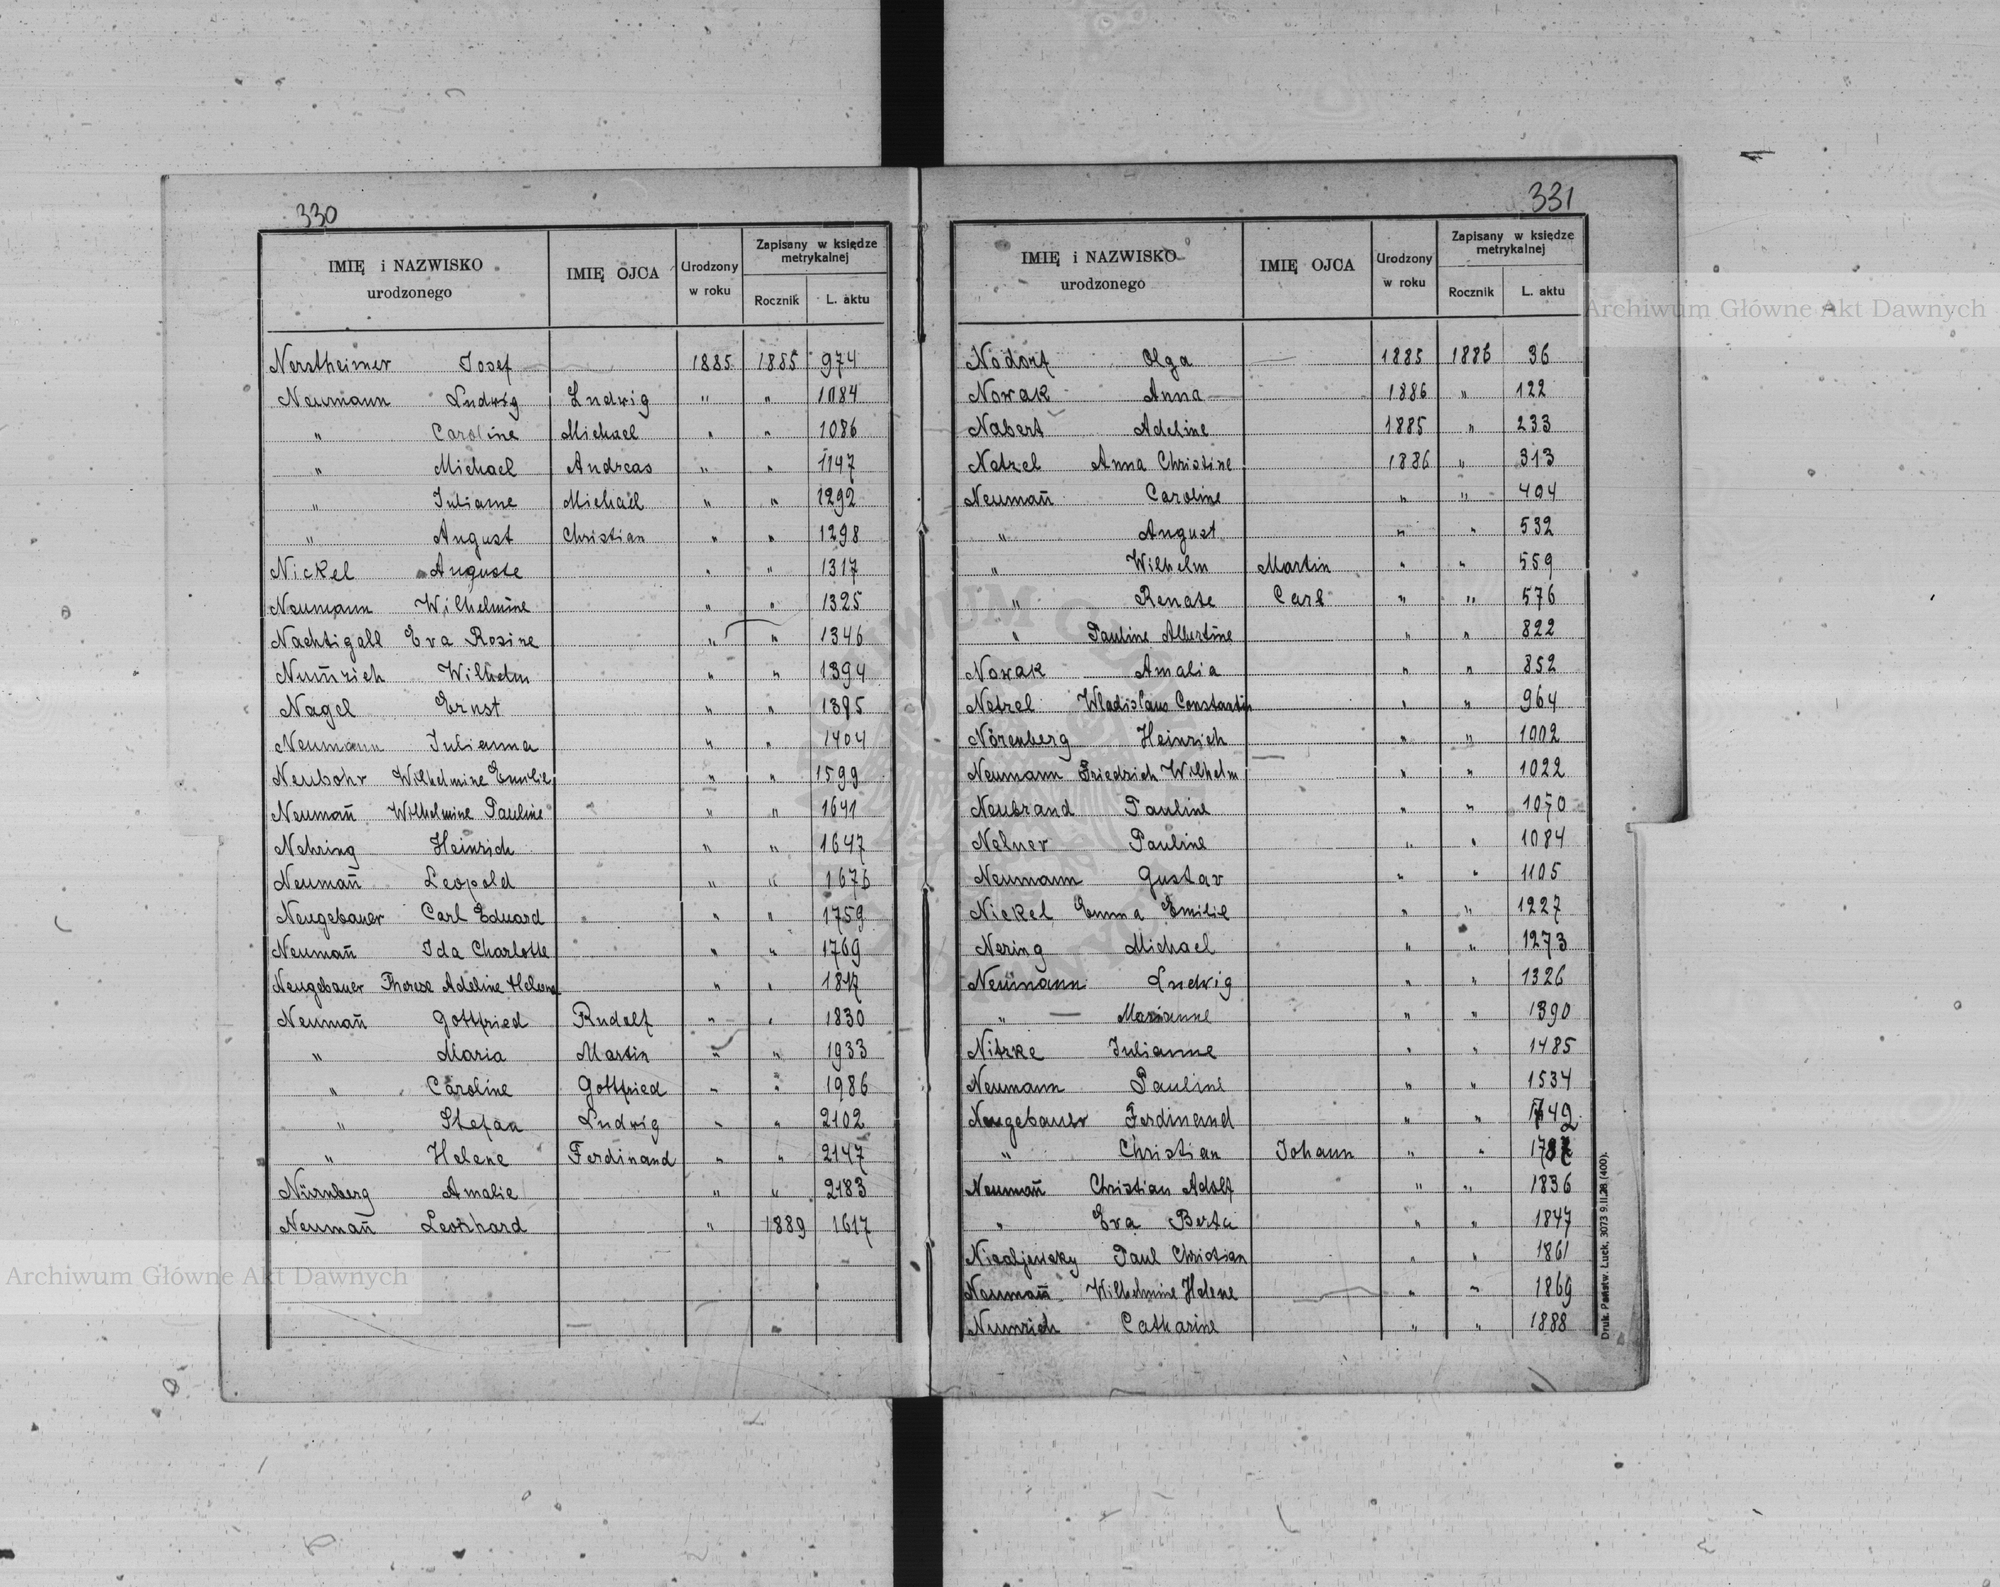 330
IMIĘ i NAZWISKO urodzonego IMIĘ OJCA Urodzony w roku Zapisany w księdze metrykalnej Rocznik L. aktu
Nerstheimer Josef 1885 1885 974
Neumann Ludwig Ludwig " " 1084
" Caroline Michael " " 1086
" Michael Andreas " " 1147
" Julianne Michael " " 1292
" August Christian " " 1298
Nickel Auguste " " 1317
Neumann Wilhelmine " " 1325
Nachtigall Eva Rosine " " 1346
Num̄rich Wilhelm " " 1394
Nagel Ernst " " 1395
Neumann Julianna " " 1404
Neubohr Wilhelmine Emilie " " 1599
Neuman̄ Wilhelmine Pauline " " 1641
Nehring Heinrich " " 1647
Neuman̄ Leopold " " 1676
Neugebauer Carl Eduard " " 1759
Neuman̄ Ida Charlotte " " 1769
Neugebauer Therese Adeline Helene " " 1817
Neuman̄ Gottfried Rudolf " " 1830
" Maria Martin " " 1933
" Caroline Gottfried " " 1986
" Stefan Ludwig " " 2102
" Helene Ferdinand " " 2147
Nürnberg Amalie " " 2183
Neuman̄ Leonhard " 1889 1617
331
IMIĘ i NAZWISKO urodzonego IMIĘ OJCA Urodzony w roku Zapisany w księdze metrykalnej Rocznik L. aktu
Nodorf Olga 1885 1886 36
Nowak Anna 1886 " 122
Nabert Adeline 1885 " 233
Netzel Anna Christine 1886 " 313
Neuman̄ Caroline " " 404
" August " " 532
" Wilhelm Martin " " 559
" Renate Carl " " 576
" Pauline Albertine " " 822
Nowak Amalia " " 852
Netzel Wladislaus Constantin " " 964
Nörenberg Heinrich " " 1002
Neumann Friedrich Wilhelm " " 1022
Neubrand Pauline " " 1070
Nelner Pauline " " 1084
Neumann Gustav " " 1105
Nickel Emma Emilie " " 1227
Nering Michael " " 1273
Neumann Ludwig " " 1326
" Marianne " " 1390
Nitzke Julianne " " 1485
Neumann Pauline " " 1534
Neugebauer Ferdinand " " 1749
" Christian Johann " " 1787
Neuman̄ Christian Adolf " " 1836
" Eva Berta " " 1847
Paul Christian " " 1861
Neuman̄ Wilhelmine Helene " " 1869
Numrich Catharine " " 1888
Druk. Państw. Łuck, 3073 9.II.28 (400).
Archiwum Główne Akt Dawnych
Archiwum Główne Akt Dawnych